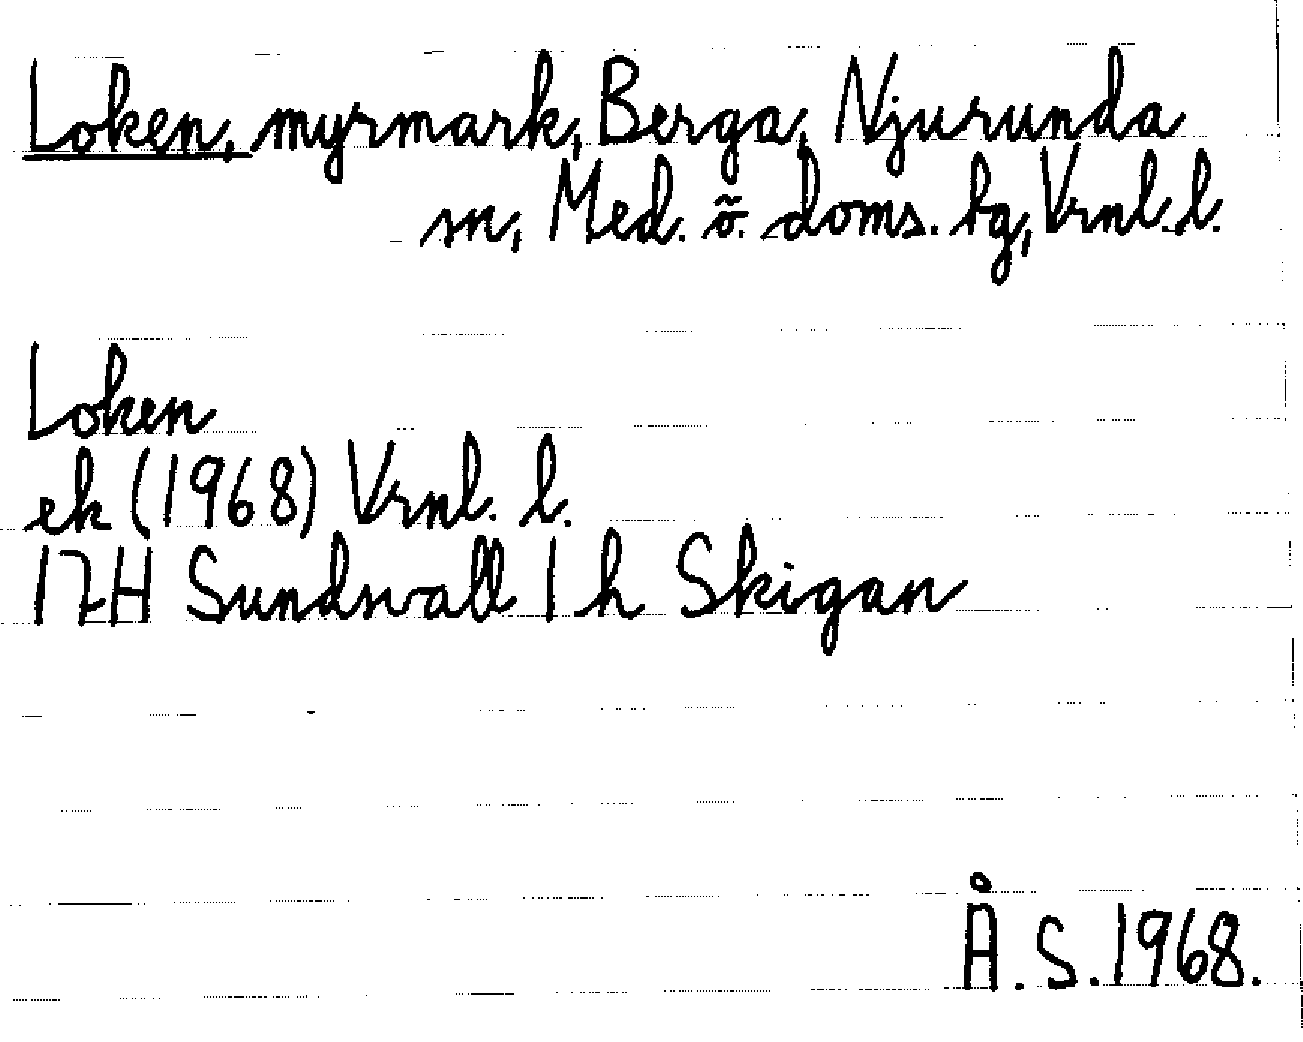 Loken, myrmark, Berga, Njurunda
sn, Med. ö. doms. tg, Vrnl. l.
Loken
ek (1968) Vrnl. l.
17H Sundsvall 1 h Skigan
Å. S. 1968.